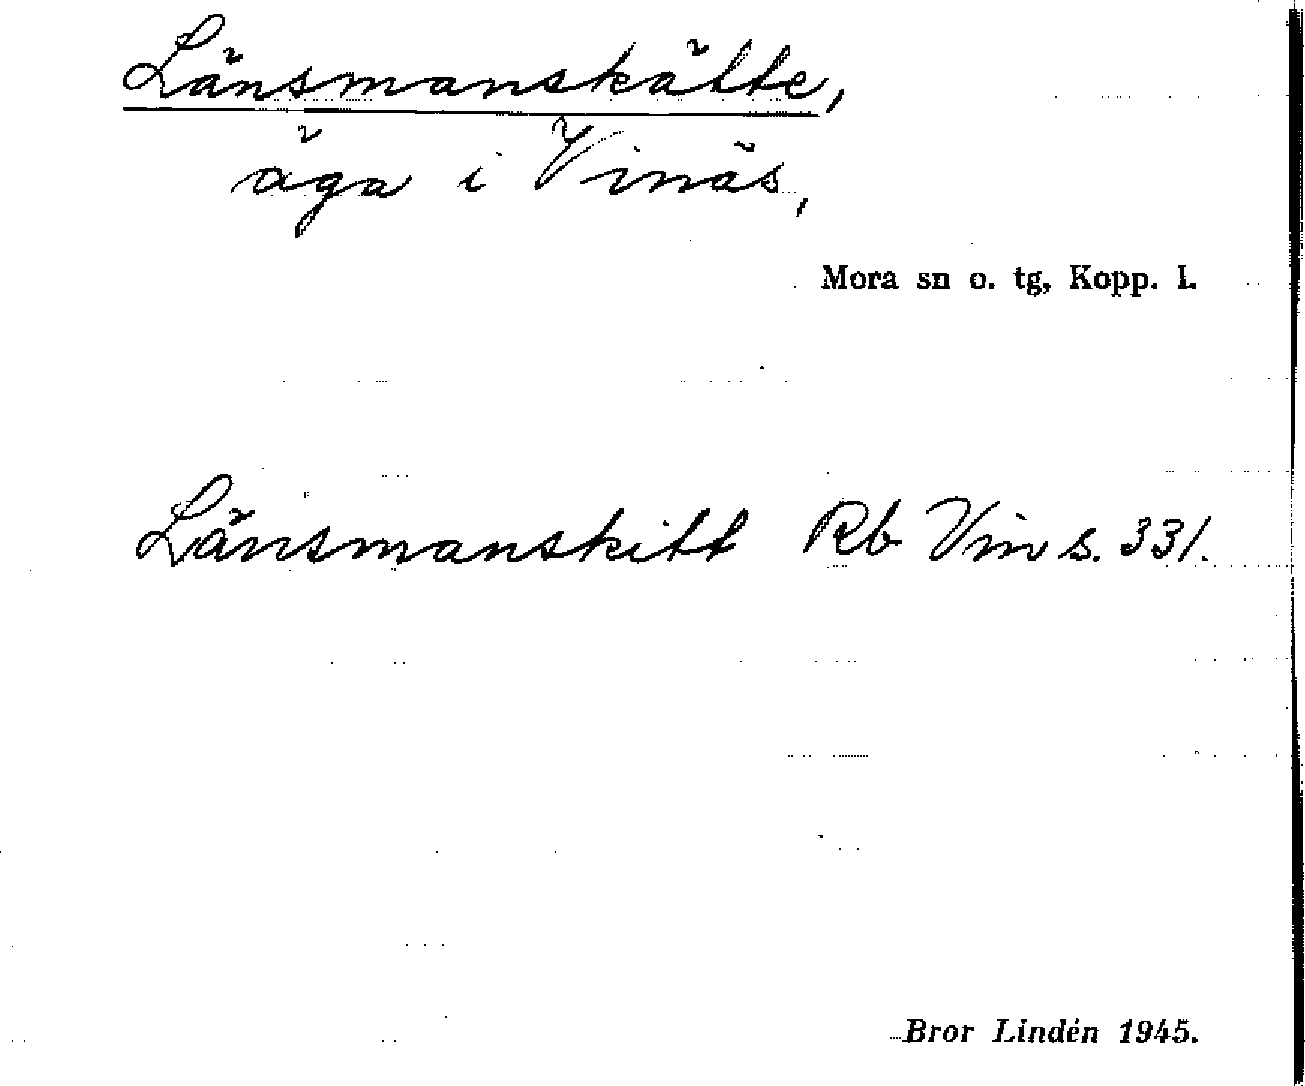 Länsmanskätte,
äga i Vinäs,
Mora sn o. tg, Kopp. l.
Länsmanskitt Rb Vin s. 331.
Bror Lindén 1945.